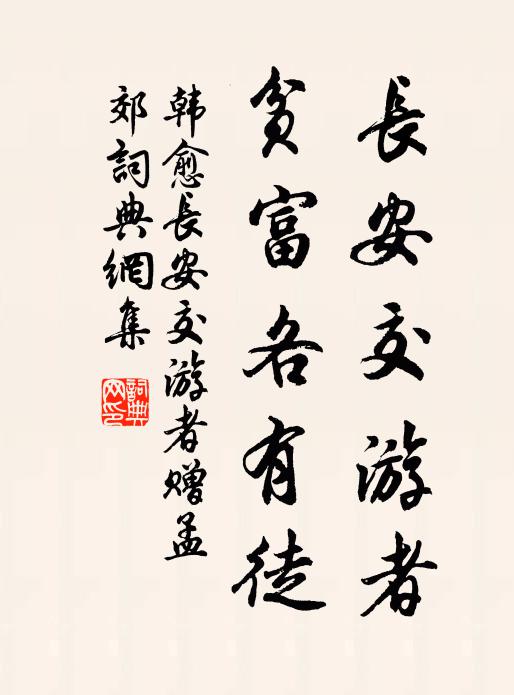 長安交游者
貧富各有徒
韩愈長安交游者赠孟
郊詞典網集
詞典
网印